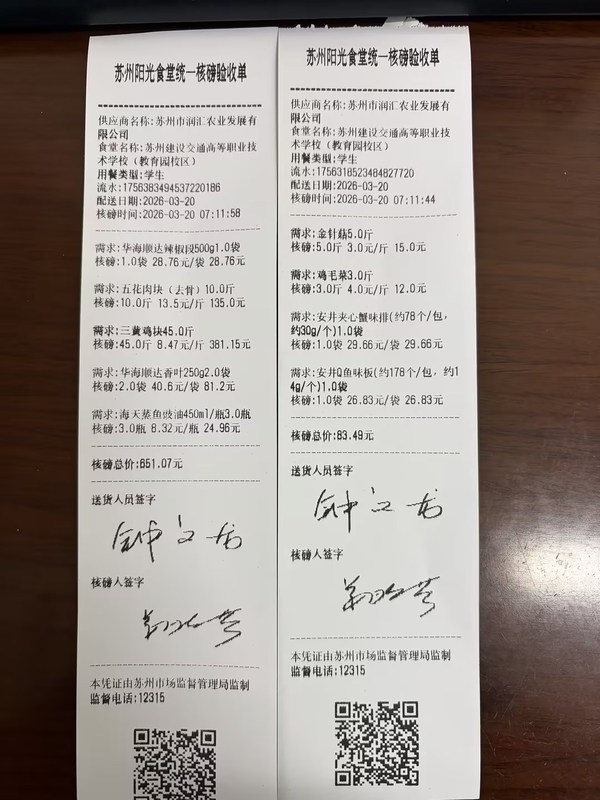 苏州阳光食堂统一核磅验收单
供应商名称:苏州市润汇农业发展有
限公司
食堂名称:苏州建设交通高等职业技
术学校（教育园校区）
用餐类型:学生
流水:1756383494537220186
配送日期:2026-03-20
核磅时间:2026-03-20 07:11:58
需求:华海顺达辣椒段500g1.0袋
核磅:1.0袋 28.76元/袋 28.76元
需求:五花肉块（去骨）10.0斤
核磅:10.0斤 13.5元/斤 135.0元
需求:三黄鸡块45.0斤
核磅:45.0斤 8.47元/斤 381.15元
需求:华海顺达香叶250g2.0袋
核磅:2.0袋 40.6元/袋 81.2元
需求:海天蒸鱼豉油450ml/瓶3.0瓶
核磅:3.0瓶 8.32元/瓶 24.96元
核磅总价:651.07元
送货人员签字
核磅人签字
本凭证由苏州市场监督管理局监制
监督电话:12315
苏州阳光食堂统一核磅验收单
供应商名称:苏州市润汇农业发展有
限公司
食堂名称:苏州建设交通高等职业技
术学校（教育园校区）
用餐类型:学生
流水:1756318523484827720
配送日期:2026-03-20
核磅时间:2026-03-20 07:11:44
需求:金针菇5.0斤
核磅:5.0斤 3.0元/斤 15.0元
需求:鸡毛菜3.0斤
核磅:3.0斤 4.0元/斤 12.0元
需求:安井夹心蟹味排(约78个/包,
约30g/个)1.0袋
核磅:1.0袋 29.66元/袋 29.66元
需求:安井Q鱼味板(约178个/包, 约1
4g/个)1.0袋
核磅:1.0袋 26.83元/袋 26.83元
核磅总价:83.49元
送货人员签字
核磅人签字
本凭证由苏州市场监督管理局监制
监督电话:12315